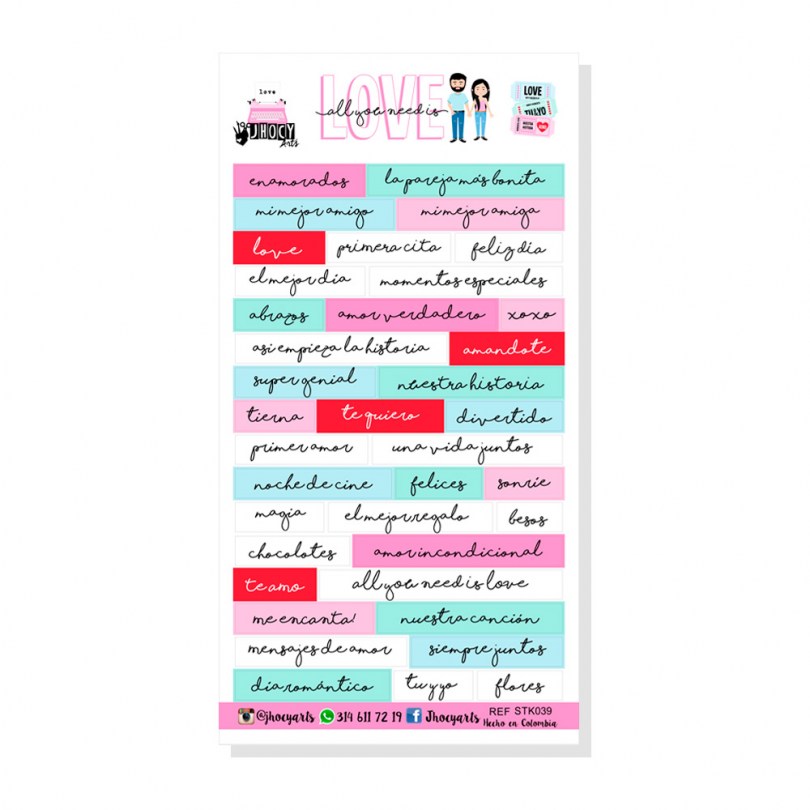 love
JHOCY
Arts
LOVE
all you need is
LOVE
enamorados la pareja más bonita
mi mejor amigo mi mejor amiga
love primera cita feliz día
el mejor día momentos especiales
abrazos amor verdadero xoxo
asi empieza la historia amandote
super genial nuestra historia
tierna te quiero divertido
primer amor una vida juntos
noche de cine felices sonríe
magia el mejor regalo besos
chocolotes amor incondicional
te amo all you need is love
me encanta! nuestra canción
mensajes de amor siempre juntos
día romántico tu y yo flores
@jhocyarts 314 611 72 19 Jhocyarts REF STK039
Hecho en Colombia